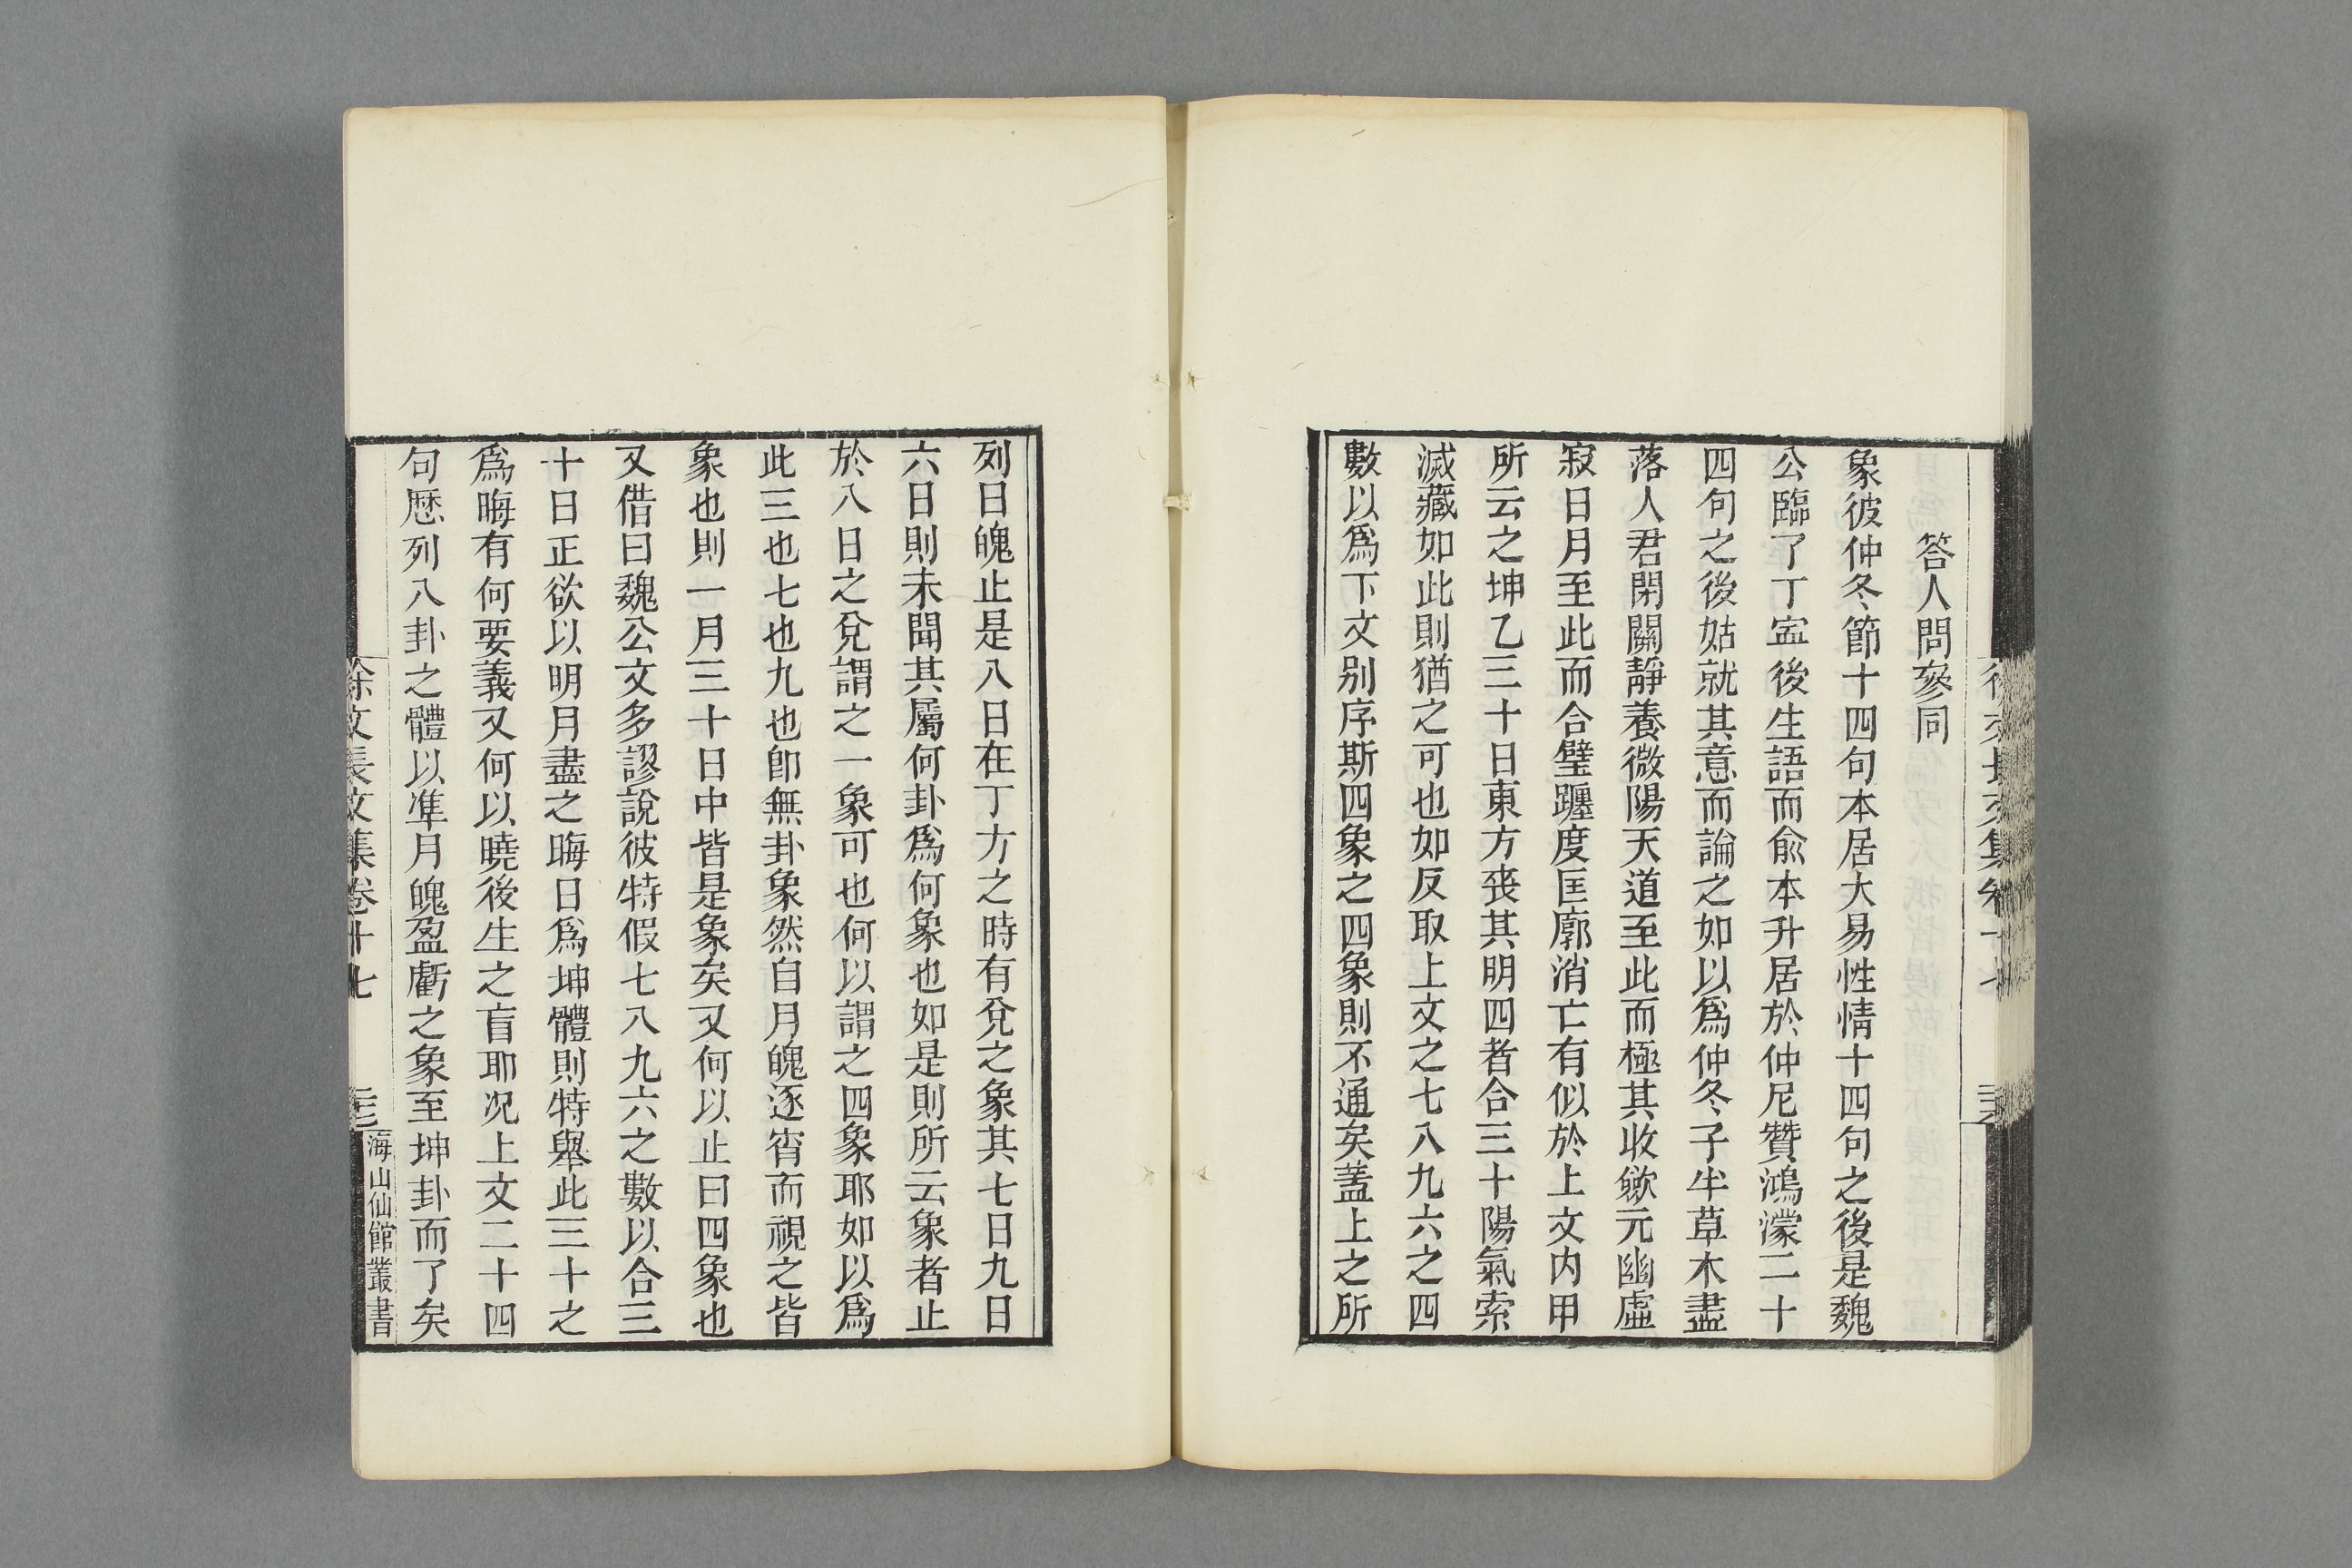 答人問參同
象彼仲冬節十四句本居大易性情十四句之後是魏
公臨了丁寍後生語而俞本升居於仲尼贊鴻濛二十
四句之後姑就其意而論之如以爲仲冬子半草木盡
落人君閉關靜養微陽天道至此而極其收歛元幽虛
寂日月至此而合璧躔度匡廓消亡有似於上文内甲
所云之坤乙三十日東方丧其明四者合三十陽氣索
滅藏如此則猶之可也如反取上文之七八九六之四
數以爲下文别序斯四象之四象則不通矣蓋上之所
列日魄止是八日在丁方之時有兌之象其七日九日
六日則未聞其屬何卦爲何象也如是則所云象者止
於八日之兌謂之一象可也何以謂之四象耶如以爲
此三也七也九也卽無卦象然自月魄逐宵而視之皆
象也則一月三十日中皆是象矣又何以止曰四象也
又借曰魏公文多謬說彼特假七八九六之數以合三
十日正欲以明月盡之晦日爲坤體則特舉此三十之
爲晦有何要義又何以曉後生之盲耶况上文二十四
句歷列八卦之體以準月魄盈虧之象至坤卦而了矣
徐文長文集卷十七
海山仙館叢書